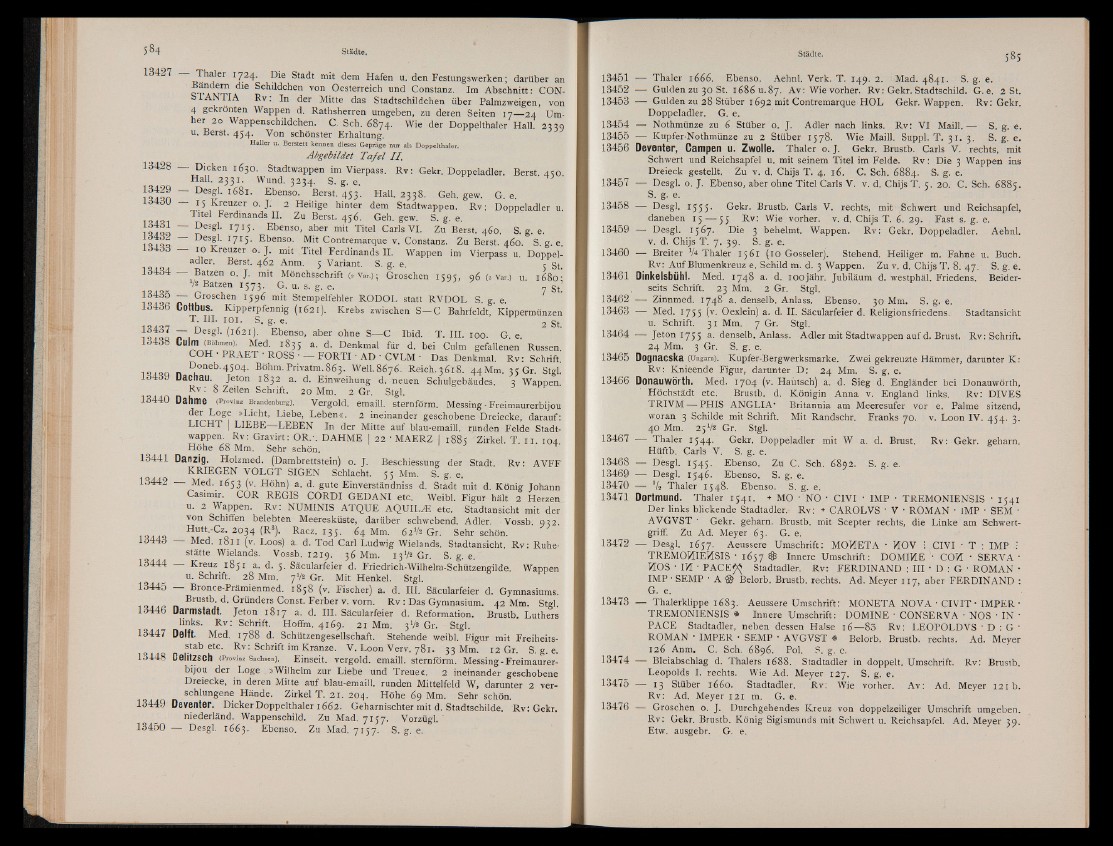 584
Städte.
13427 — Thaler 1724. Die Stadt mit dem Hafen u. den Festungswerken; darüber an
Bändern die Schildchen von Oesterreich und Constanz. Im Abschnitt: CON-
STANTIA Rv: In der Mitte das Stadtschildchen über Palmzweigen, von
4 gekrönten Wappen d. Rathsherren umgeben, zu deren Seiten 17—24 Um-
her 20 Wappenschildchen. C. Sch. 6874. Wie der Doppelthaler Hall. 2339
u. Berst. 454. Von schönster Erhaltung.
Haller u. Berstett kennen dieses Gepräge nur als Doppelthaler.
Abgebildet Tafel II.
13428 — Dicken 1630. Stadtwappen im Vierpass. Rv: Gekr. Doppeladler. Berst. 450.
Hall. 2331. Wund. 3234. S. g. e.
13429 — Desgl. 1681. Ebenso. Berst. 453. Hall. 2338. Geh. gew. G. e.
13430 — 15 Kreuzer o. J. 2 Heilige hinter dem Stadtwappen. Rv: Doppeladler u.
Titel Ferdinands II. Zu Berst. 456. Geh. gew. S. g. e.
13431 — Desgl. 1715. Ebenso, aber mit Titel Carls VI. Zu Berst. 460. S. g. e.
13432 — Desgl. 1715. Ebenso. Mit Contremarque v. Constanz. Zu Berst. 460. S. g. e.
13433 — 10 Kreuzer o. J. mit Titel Ferdinands II. Wappen im Vierpass u. Doppel-
adler. Berst. 462 Anm. 5 Variant. S. g. e. 5 St.
13434 — Batzen o. J. mit Mönchsschrift; Groschen 1595, 96 u. 1680;
½ Batzen 1573. G. u. s. g. e. 7 St.
13435 — Groschen 1596 mit Stempelfehler RODOL statt RVDOL S. g. e.
13436 Cottbus. Kipperpfennig (1621). Krebs zwischen S—C Bahrfeldt, Kippermünzen
T. III. 101. S. g. e. 2 St.
13437 — Desgl. (1621). Ebenso, aber ohne S—C Ibid. T. III. 100. G. e.
13438 Culm (Böhmen). Med. 1835 a. d. Denkmal für d. bei Culm gefallenen Russen.
COH · PRAET · ROSS · — FORTI · AD · CVLM · Das Denkmal. Rv: Schrift.
Doneb. 4504. Böhm. Privatm. 863. Well. 8676. Reich. 3618. 44 Mm. 35 Gr. Stgl.
13439 Dachau. Jeton 1832 a. d. Einweihung d. neuen Schulgebäudes. 3 Wappen.
Rv: 8 Zeilen Schrift. 20 Mm. 2 Gr. Stgl.
13440 Dahme (Provinz Brandenburg). Vergold. emaill. sternförm. Messing-Freimaurerbijou
der Loge »Licht, Liebe, Leben«. 2 ineinander geschobene Dreiecke, darauf:
LICHT | LIEBE—LEBEN In der Mitte auf blau-emaill. runden Felde Stadt-
wappen. Rv: Gravirt: OR.·. DAHME | 22 · MAERZ | 1885 Zirkel. T. 11. 104.
Höhe 68 Mm. Sehr schön.
13441 Danzig. Holzmed. (Dambrettstein) o. J. Beschiessung der Stadt. Rv: AVFF
KRIEGEN VOLGT SIGEN Schlacht. 55 Mm. S. g. e.
13442 — Med. 1653 (v. Höhn) a. d. gute Einverständniss d. Stadt mit d. König Johann
Casimir. COR REGIS CORDI GEDANI etc. Weibl. Figur hält 2 Herzen
u. 2 Wappen. Rv: NUMINIS ATQUE AQUILÆ etc. Stadtansicht mit der
von Schiffen belebten Meeresküste, darüber schwebend. Adler. Vossb. 932.
Hutt.-Cz. 2034 (R³). Racz. 135. 64 Mm. 62½ Gr. Sehr schön.
13443 — Med. 1811 (v. Loos) a. d. Tod Carl Ludwig Wielands. Stadtansicht. Rv: Ruhe-
stätte Wielands. Vossb. 1219. 36 Mm. 13½ Gr. S. g. e.
13444 — Kreuz 1851 a. d. 5. Säcularfeier d. Friedrich-Wilhelm-Schützengilde. Wappen
u. Schrift. 28 Mm. 7½ Gr. Mit Henkel. Stgl.
13445 — Bronce-Prämienmed. 1858 (v. Fischer) a. d. III. Säcularfeier d. Gymnasiums.
Brustb. d. Gründers Const. Ferber v. vorn. Rv: Das Gymnasium. 42 Mm. Stgl.
13446 Darmstadt. Jeton 1817 a. d. III. Säcularfeier d. Reformation. Brustb. Luthers
links. Rv: Schrift. Hoffm. 4169. 21 Mm. 3½ Gr. Stgl.
13447 Delft. Med. 1788 d. Schützengesellschaft. Stehende weibl. Figur mit Freiheits-
stab etc. Rv: Schrift im Kranze. V. Loon Verv. 781. 33 Mm. 12 Gr. S. g. e.
13448 Delitzsch (Provinz Sachsen). Einseit. vergold. emaill. sternförm. Messing-Freimaurer-
bijou der Loge »Wilhelm zur Liebe und Treue«. 2 ineinander geschobene
Dreiecke, in deren Mitte auf blau-emaill. runden Mittelfeld W, darunter 2 ver-
schlungene Hände. Zirkel T. 21. 204. Höhe 69 Mm. Sehr schön.
13449 Deventer. Dicker Doppelthaler 1662. Geharnischter mit d. Stadtschilde. Rv: Gekr.
niederländ. Wappenschild. Zu Mad. 7157. Vorzügl.
13450 — Desgl. 1663. Ebenso. Zu Mad. 7157. S. g. e.
Städte.
585
13451 — Thaler 1666. Ebenso. Aehnl. Verk. T. 149. 2. Mad. 4841. S. g. e.
13452 — Gulden zu 30 St. 1686 u. 87. Av: Wie vorher. Rv: Gekr. Stadtschild. G. e. 2 St.
13453 — Gulden zu 28 Stüber 1692 mit Contremarque HOL Gekr. Wappen. Rv: Gekr.
Doppeladler. G. e.
13454 — Nothmünze zu 6 Stüber o. J. Adler nach links. Rv: VI Maill. — S. g. e.
13455 — Kupfer-Nothmünze zu 2 Stüber 1578. Wie Maill. Suppl. T. 31. 3. S. g. e.
13456 Deventer, Campen u. Zwolle. Thaler o. J. Gekr. Brustb. Carls V. rechts, mit
Schwert und Reichsapfel u. mit seinem Titel im Felde. Rv: Die 3 Wappen ins
Dreieck gestellt. Zu v. d. Chijs T. 4. 16. C. Sch. 6884. S. g. e.
13457 — Desgl. o. J. Ebenso, aber ohne Titel Carls V. v. d. Chijs T. 5. 20. C. Sch. 6885.
S. g. e.
13458 — Desgl. 1555. Gekr. Brustb. Carls V. rechts, mit Schwert und Reichsapfel,
daneben 15 — 55 Rv: Wie vorher. v. d. Chijs T. 6. 29. Fast s. g. e.
13459 — Desgl. 1567. Die 3 behelmt. Wappen. Rv: Gekr. Doppeladler. Aehnl.
v. d. Chijs T. 7. 39. S. g. e.
13460 — Breiter ¼ Thaler 1561 (10 Gosseler). Stehend. Heiliger m. Fahne u. Buch.
Rv: Auf Blumenkreuz e. Schild m. d. 3 Wappen. Zu v. d. Chijs T. 8. 47. S. g. e.
13461 Dinkelsbühl. Med. 1748 a. d. 100jähr. Jubiläum d. westphäl. Friedens. Beider-
seits Schrift. 23 Mm. 2 Gr. Stgl.
13462 — Zinnmed. 1748 a. denselb. Anlass. Ebenso. 30 Mm. S. g. e.
13463 — Med. 1755 (v. Oexlein) a. d. II. Säcularfeier d. Religionsfriedens. Stadtansicht
u. Schrift. 31 Mm. 7 Gr. Stgl.
13464 — Jeton 1755 a. denselb. Anlass. Adler mit Stadtwappen auf d. Brust. Rv: Schrift.
24 Mm. 3 Gr. S. g. e.
13465 Dognacska (Ungarn). Kupfer-Bergwerksmarke. Zwei gekreuzte Hämmer, darunter K:
Rv: Knieende Figur, darunter D: 24 Mm. S. g. e.
13466 Donauwörth. Med. 1704 (v. Hautsch) a. d. Sieg d. Engländer bei Donauwörth,
Höchstädt etc. Brustb. d. Königin Anna v. England links. Rv: DIVES
TRIVM — PHIS ANGLIA· Britannia am Meeresufer vor e. Palme sitzend,
woran 3 Schilde mit Schrift. Mit Randschr. Franks 70. v. Loon IV. 454. 3.
40 Mm. 25½ Gr. Stgl.
13467 — Thaler 1544. Gekr. Doppeladler mit W a. d. Brust. Rv: Gekr. geharn.
Hüftb. Carls V. S. g. e.
13468 — Desgl. 1545. Ebenso. Zu C. Sch. 6892. S. g. e.
13469 — Desgl. 1546. Ebenso. S. g. e.
13470 — ½ Thaler 1548. Ebenso. S. g. e.
13471 Dortmund. Thaler 1541. + MO · NO · CIVI · IMP · TREMONIENSIS · 1541
Der links blickende Stadtadler. Rv: + CAROLVS · V · ROMAN · IMP · SEM ·
AVGVST · Gekr. geharn. Brustb. mit Scepter rechts, die Linke am Schwert-
griff. Zu Ad. Meyer 63. G. e.
13472 — Desgl. 1657. Aeussere Umschrift: MONETA · NOV : CIVI · T : IMP :
TREMONIENSIS · 1657 Innere Umschrift: DOMINE · CON · SERVA ·
NOS · IN · PACE Stadtadler. Rv: FERDINAND : III · D : G · ROMAN ·
IMP · SEMP · A Belorb. Brustb. rechts. Ad. Meyer 117, aber FERDINAND :
G. e.
13473 — Thalerklippe 1683. Aeussere Umschrift: MONETA NOVA · CIVIT · IMPER ·
TREMONIENSIS Innere Umschrift: DOMINE · CONSERVA · NOS · IN ·
PACE Stadtadler, neben dessen Halse 16—83 Rv: LEOPOLDVS · D : G ·
ROMAN · IMPER · SEMP · AVGVST Belorb. Brustb. rechts. Ad. Meyer
126 Anm. C. Sch. 6896. Pol. S. g. e.
13474 — Bleiabschlag d. Thalers 1688. Stadtadler in doppelt. Umschrift. Rv: Brustb.
Leopolds I. rechts. Wie Ad. Meyer 127. S. g. e.
13475 — 13 Stüber 1660. Stadtadler. Rv: Wie vorher. Av: Ad. Meyer 121 b.
Rv: Ad. Meyer 121 m. G. e.
13476 — Groschen o. J. Durchgehendes Kreuz von doppelzeiliger Umschrift umgeben.
Rv: Gekr. Brustb. König Sigismunds mit Schwert u. Reichsapfel. Ad. Meyer 39.
Etw. ausgebr. G. e.